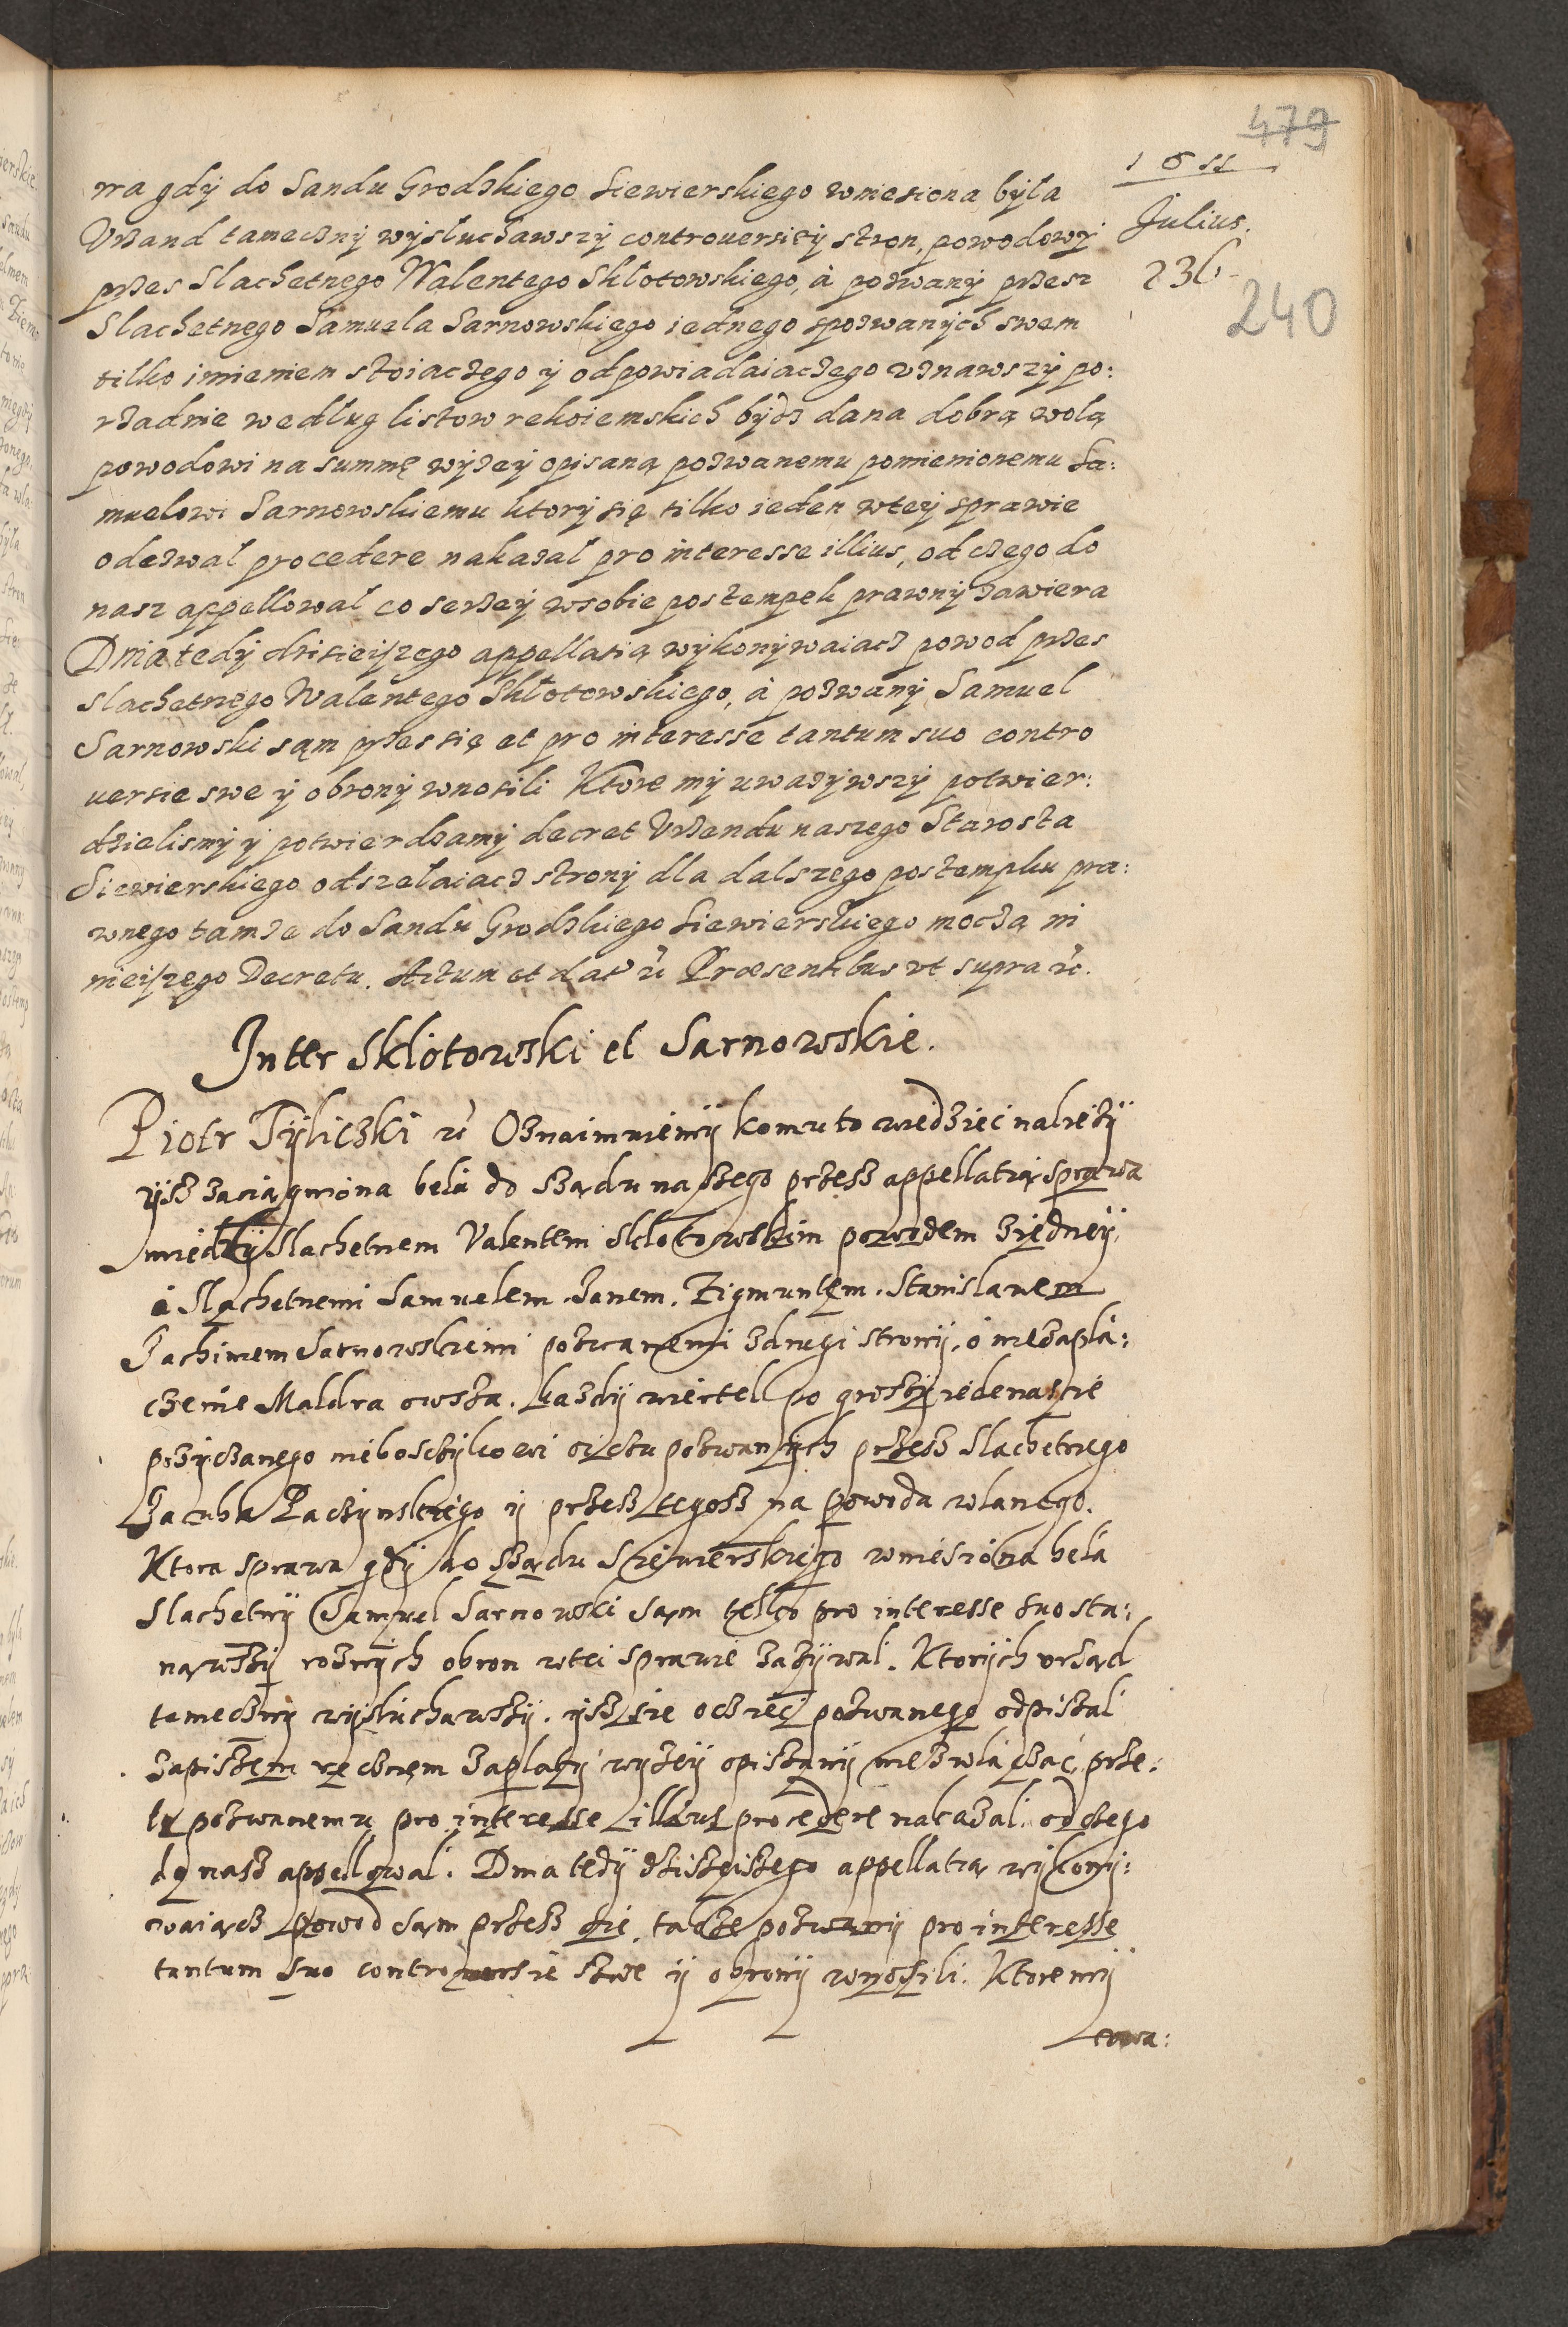 479
1611
Julius.
236
240
wa gdÿ do Sandu Grodzkiego Siewierskiego wniesiona bÿla
Vrzand tamecznÿ wÿsluchawszÿ controuersieÿ stron, powodowÿ
przes Slachetnego Walentego Sklotowskiego, à pozwanÿ przesz
Slachetnego Samuela Sarnowskiego iednego spozwanÿch swem
tilko imieniem stoiaczego ÿ odpowiadaiaczego vznawszÿ po:
rzadnie wedlug listow rekoiemskich bÿdz dana dobrą wolą
powodowi na summę wÿzeÿ opisaną pozwanemu pomienionemu Sa:
muelowi Sarnowskiemu ktorÿ się tilko ieden wteÿ sprawie
odezwal procedere nakazal pro interesse illius, od czego do
nasz appellowal co serzeÿ wsobie postempek prawnÿ zawiera
Dnia tedÿ dzisieiszego appellatią wÿkonÿwaiacz powod przes
slachetnego Walentego Sklotowskiego, à pozwanÿ Samuel
Sarnowski sąm przes się et pro interesse tantum suo contro
uersie swe ÿ obronÿ wnosili Ktore mÿ uwazÿwszÿ potwier:
dzielismÿ ÿ potwierdzamÿ decret Vrzendu naszego Starosta
Siewierskiego odszelaiacz stronÿ dla dalszego postempku pra:
wnego tamze do Sandu Grodzkiego Siewierskiego moczą ni
nieiszego Decretu. Actum et dat etc Præsentibus vt supra etc.
Inter Sklotowski et Sarnowskie.
Piotr Tÿliczki etc Oznaimuiemÿ komu to wiedziec nalezÿ
ÿsz zaciągniona bela do sządu naszego przesz appellatią sprawa
miedzÿ Slachetnem Valentem Sklotowskim powodem ziedneÿ,
à Slachetnemi Samuelem. Janem. Zigmuntem. Stanislawem
Jachimem Sarnowskiemi pozwanemi zdrugi stronÿ. o niezapla:
czenie Maldra owsza. kazdÿ wiertell po groszÿ iedenascie
pozÿczanego nieboszczÿkowi oiczu pozwanÿch przesz slachetnego
Jacuba Paczÿnskiego ÿ przesz tegosz na powoda wlanego.
Ktora sprawa gdÿ do sządu Sziewierskiego wniesiona bela
Slachetnÿ Samuel Sarnowski sąm telko pro interesse suo sta:
nąwszÿ roznÿch obron wtei sprawie zazÿwal. Ktorÿch vrząd
tamecznÿ wÿsluchawszÿ. ÿsz sie oczieć pozwanego odpiszal
zapiszem ręcznem zaplatÿ wÿzeÿ opiszanÿ niezwlaczać, prze:
to pozwanemu pro interesse illius procedere nakazal. od czego
do nasz appellowal. Dnia tedÿ dzisziszego appellatią wÿkonÿ:
waiącz powod sąm przesz szie, takze pozwanÿ pro interesse
tantum suo controuersie szwe ÿ obronÿ wnoszili. Ktore mÿ
vwa: